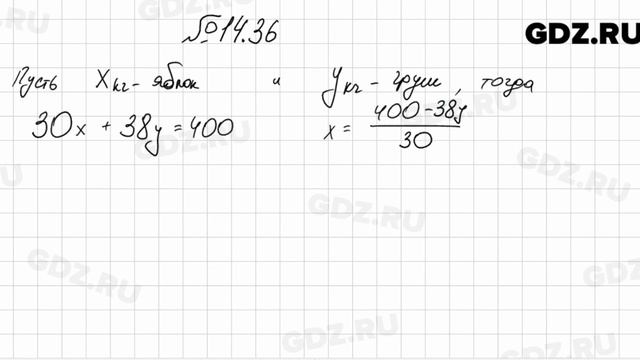 №14.36
GDZ.RU
Пусть x кг - яблок и y кг - груш, тогда
30x + 38y = 400
x = \frac{400 - 38y}{30}
GDZ.RU
GDZ.RU
GDZ.RU
GDZ.RU
GDZ.RU
GDZ.RU